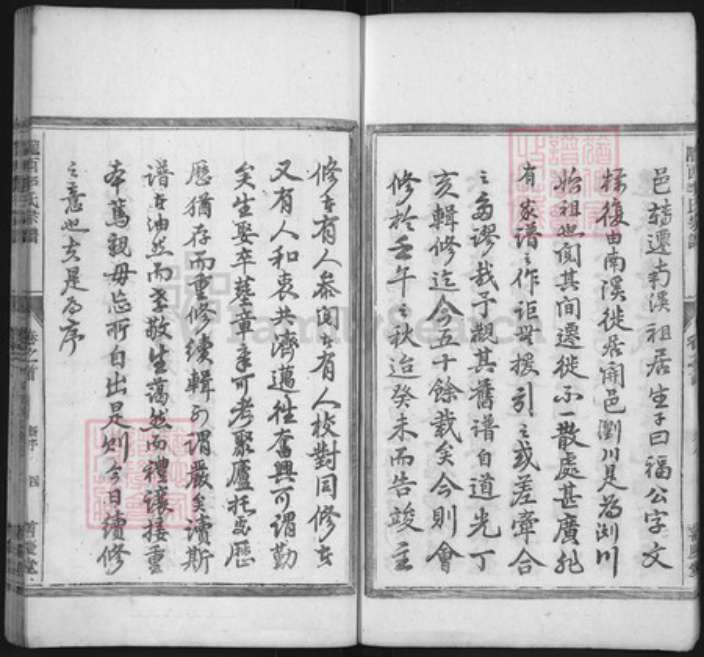 邑轉遷南溪祖居生子曰福公字文
採復由南溪徙居開邑瀏川是為瀏川
始祖也閱其間遷徙不一散處甚廣非
有家譜之作詎無援引之或差牽合
之多謬哉予觀其舊譜自道光丁
亥輯修迄今五十餘載矣今則會
修於壬午之秋迨癸未而告竣主
修者有人參閱者有人校對同修者
又有人和衷共濟邁往奮興可謂勤
矣生娶卒墓章章可考聚廬托處歷
歷猶存而重修續輯可謂嚴矣讀斯
譜者油然而孝敬生藹然而禮讓接重
本篤親毋忘所自出是則今日續修
之意也夫是為序
隴西李氏宗譜
卷之首
四